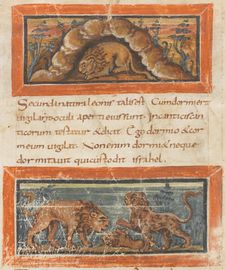 Secunda natura leonis talis est. Cum dormierit
vigilant oculi aperti eius sunt. In canticis can
ticorum testatur & dicit. Ego dormio & cor
meum vigilat. Non enim dormit neque
dormitavit qui custodit israhel.